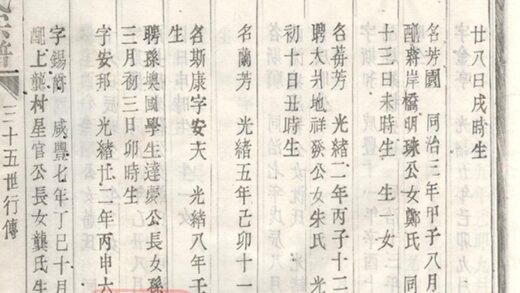 廿八日戌時生
名芳園 同治三年甲子八月
酧新岸橋明珠公女鄭氏 同
十三日未時生 生一女
名蕚芳 光緒二年丙子十二
聘大井地祥發公女朱氏 光
初十日丑時生
名蘭芳 光緒五年己卯十一
生
名斯康字安夫 光緒八年壬
聘孫墺國學生達蒙公長女孫
三月初三日卯時生
字安邦 光緒廿二年丙申六
字錫簡 咸豐七年丁巳十月
上龔村星官公長女龔氏生
三十五世行傳
宗譜